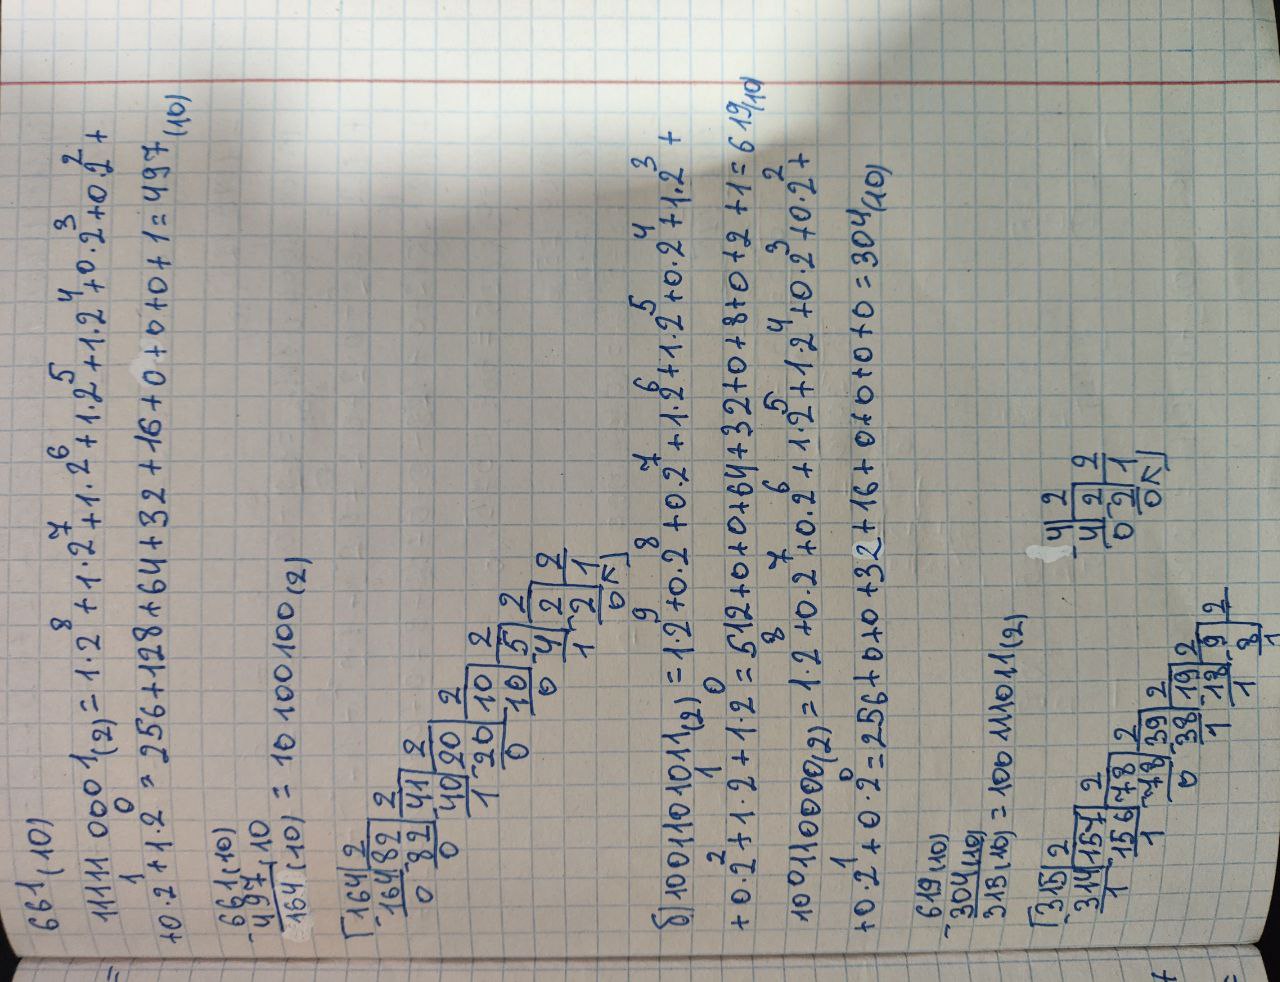 661(10)
111110001(2) = 1·2⁸ + 1·2⁷ + 1·2⁶ + 1·2⁵ + 1·2⁴ + 0·2³ + 0·2² +
+0·2¹ + 1·2⁰ = 256+128+64+32+16+0+0+0+1 = 497(10)
-661(10)
497(10
164(10) = 10100100(2)
-164|2
164|82|2
0 -82|41|2
0 40|20|2
1 -20|10|2
0 10|5|2
0 -4|2|2
1 -2|1
0
б)1001101011(2) = 1·2⁹ + 0·2⁸ + 0·2⁷ + 1·2⁶ + 1·2⁵ + 0·2⁴ + 1·2³ +
+0·2² + 1·2¹ + 1·2⁰ = 512+0+0+64+32+0+8+0+2+1 = 619(10)
100110000(2) = 1·2⁸ + 0·2⁷ + 0·2⁶ + 1·2⁵ + 1·2⁴ + 0·2³ + 0·2² +
+0·2¹ + 0·2⁰ = 256+0+0+32+16+0+0+0+0 = 304(10)
-619(10)
304(10)
315(10) = 100111011(2)
-315|2
314|157|2
1 156|78|2
1 -78|39|2
0 -38|19|2
1 18|9|2
1 8
1
-4|2
4|2|2
0 2|1
0